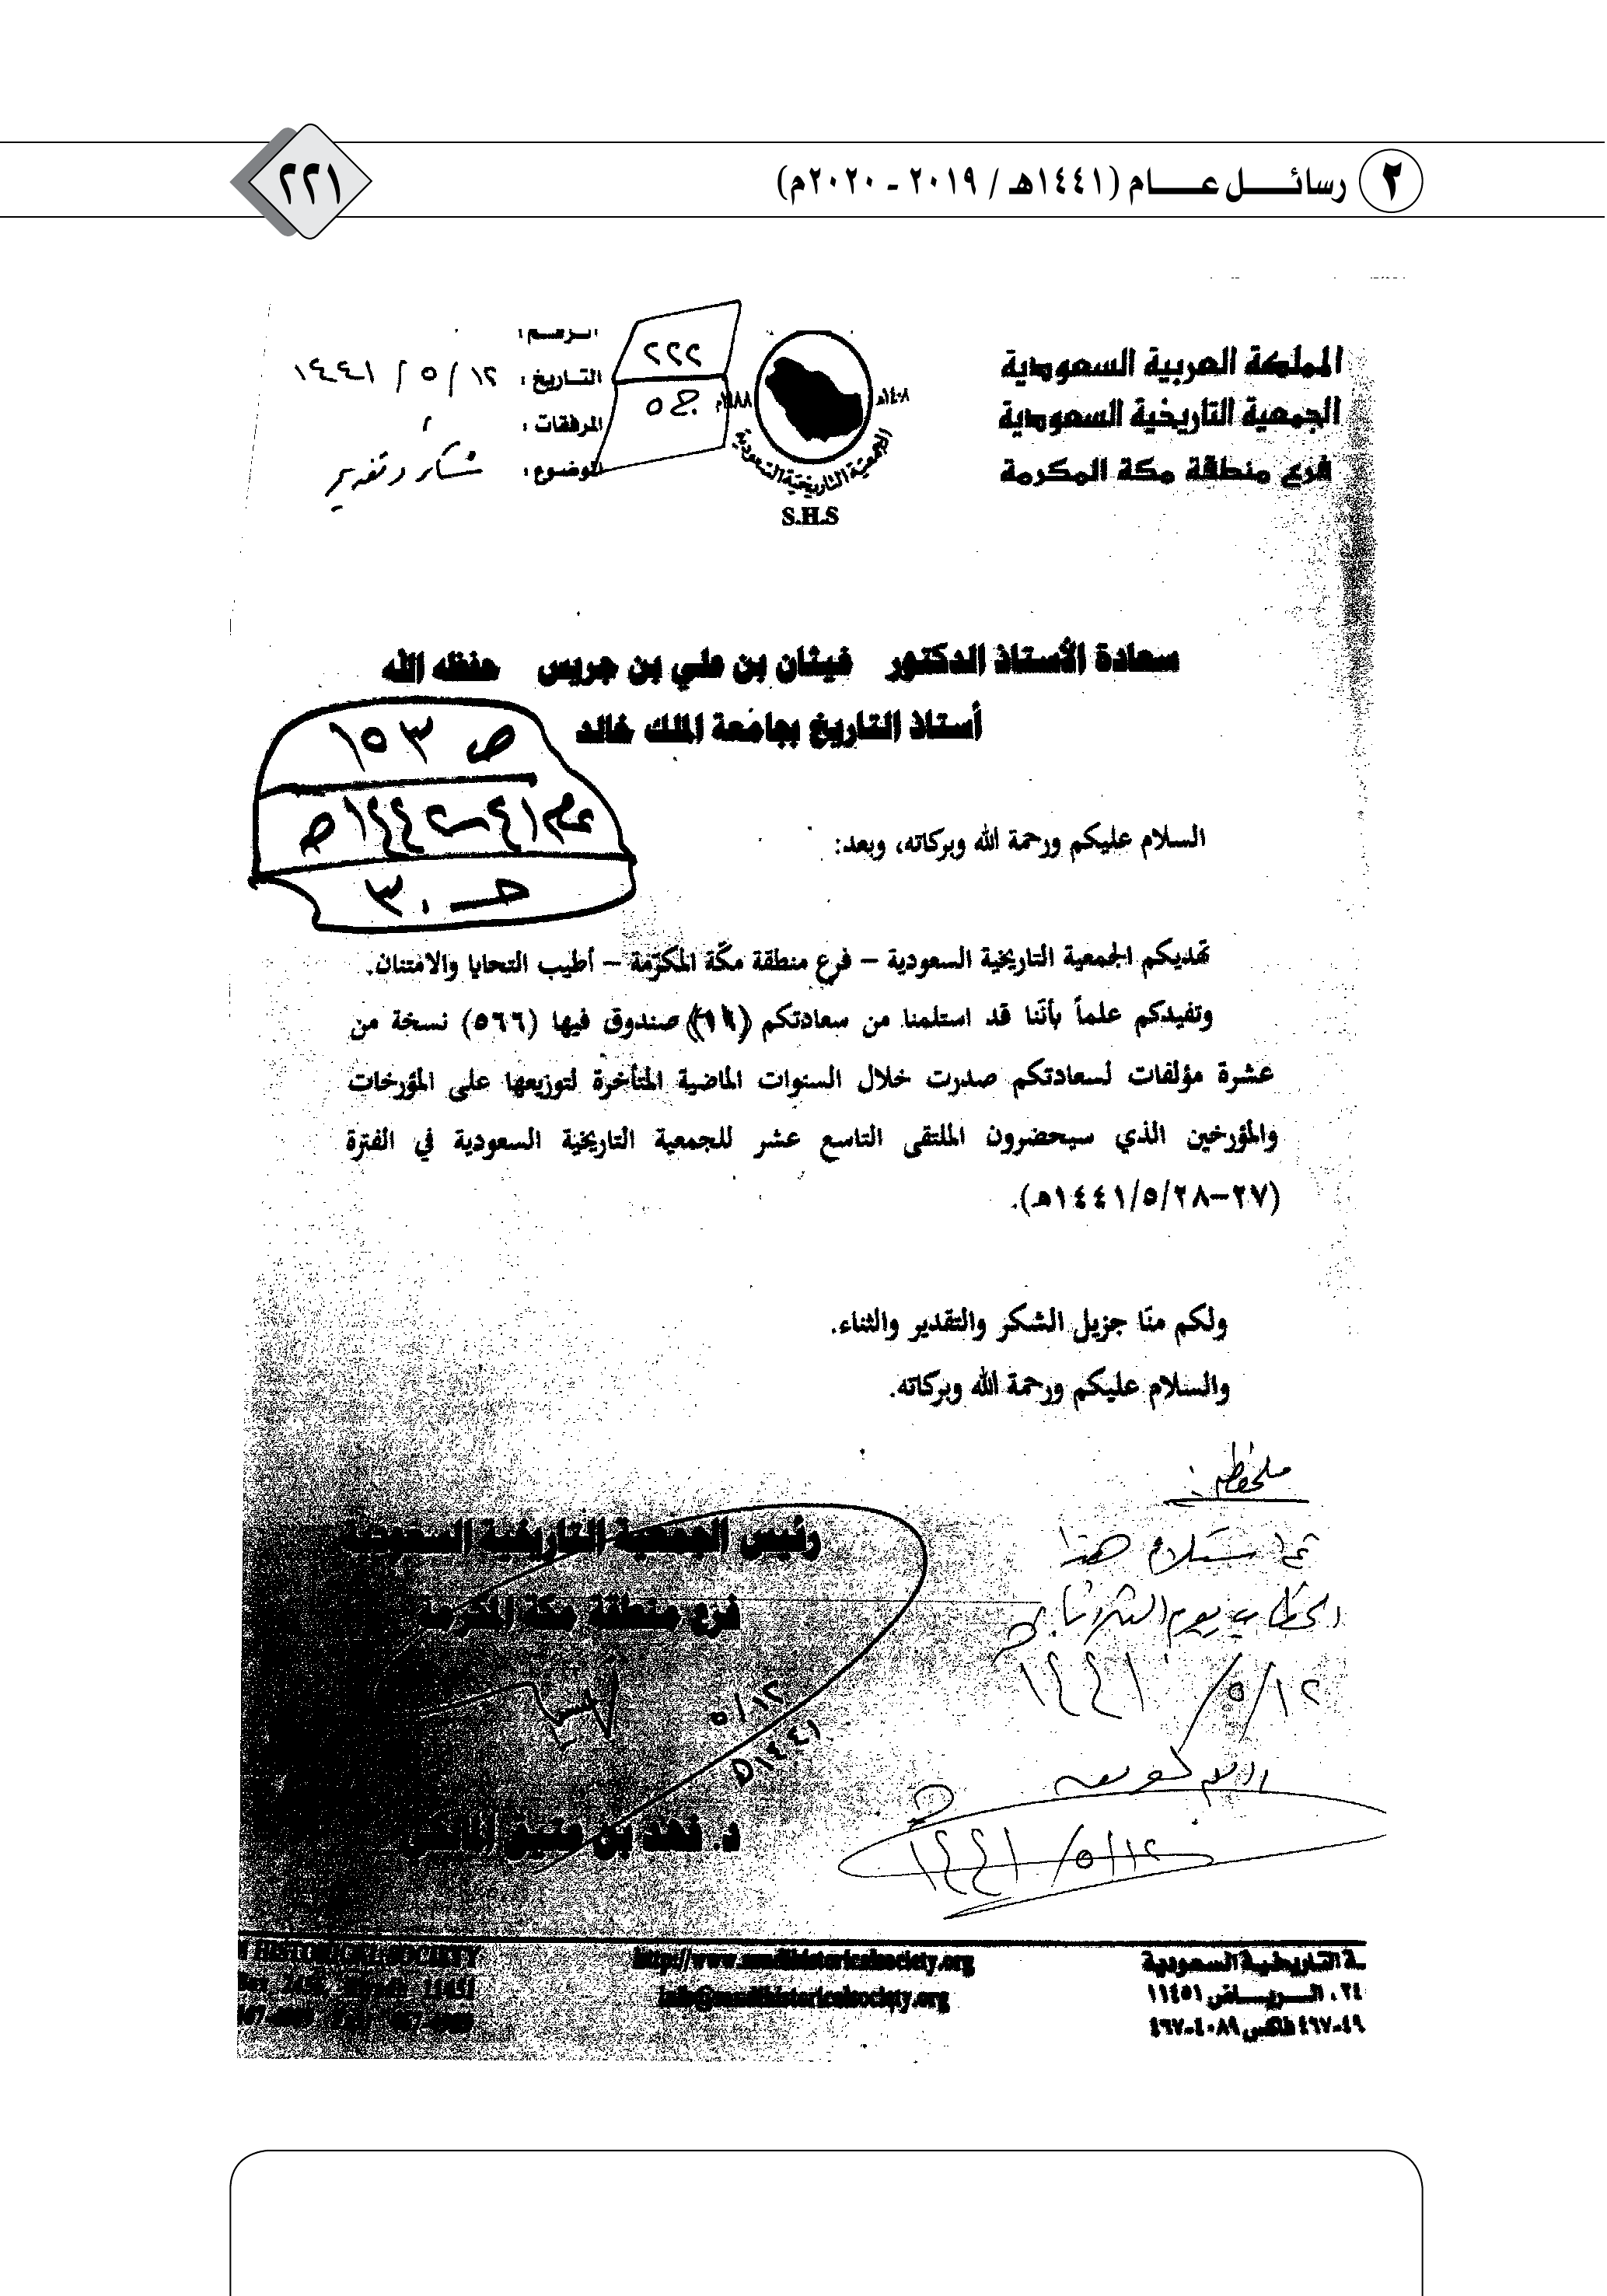 ٢ رسائـــل عـــام (١٤٤١هـ / ٢٠١٩ ـ ٢٠٢٠م)
٢٢١
المملكة العربية السعودية
الجمعية التاريخية السعودية
فرع منطقة مكة المكرمة
١٤٠٨هـ
الجمعية التاريخية السعودية
S.H.S
٢٢٢
ج٥
الرقم :
التاريخ : ١٢ / ٥ / ١٤٤١
المرفقات :
الموضوع : شكر وتقدير
سعادة الأستاذ الدكتور غيثان بن علي بن جريس حفظه الله
أستاذ التاريخ بجامعة الملك خالد
ص ١٥٣
عام ٤١-١٤٤٢هـ
السلام عليكم ورحمة الله وبركاته، وبعد:
تهديكم الجمعية التاريخية السعودية – فرع منطقة مكّة المكرّمة – أطيب التحايا والامتنان.
وتفيدكم علماً بأنّنا قد استلمنا من سعادتكم صندوق فيها (٥٦٦) نسخة من
عشرة مؤلفات لسعادتكم صدرت خلال السنوات الماضية المتأخرة لتوزيعها على المؤرخات
والمؤرخين الذي سيحضرون الملتقى التاسع عشر للجمعية التاريخية السعودية في الفترة
(٢٧-١٤٤١/٥/٢٨هـ).
ولكم منّا جزيل الشكر والتقدير والثناء.
والسلام عليكم ورحمة الله وبركاته.
ملحوظة :
تم استلام هذا
الخطاب يوم الثلاثاء
١٢ / ٥ / ١٤٤١هـ
١٢ / ٥ / ١٤٤١هـ
رئيس الجمعية التاريخية السعودية
فرع منطقة مكة المكرمة
١٢ / ٥
١٤٤١هـ
د. فهد بن عتيق المالكي
ـة التاريخية السعودية
الـــريـــاض ١١٤٥١
فاكس ٤٠٨٩-٤٦٧
http://www.saudihistoricalsociety.org
info@saudihistoricalsociety.org
HISTORICAL SOCIETY
11451